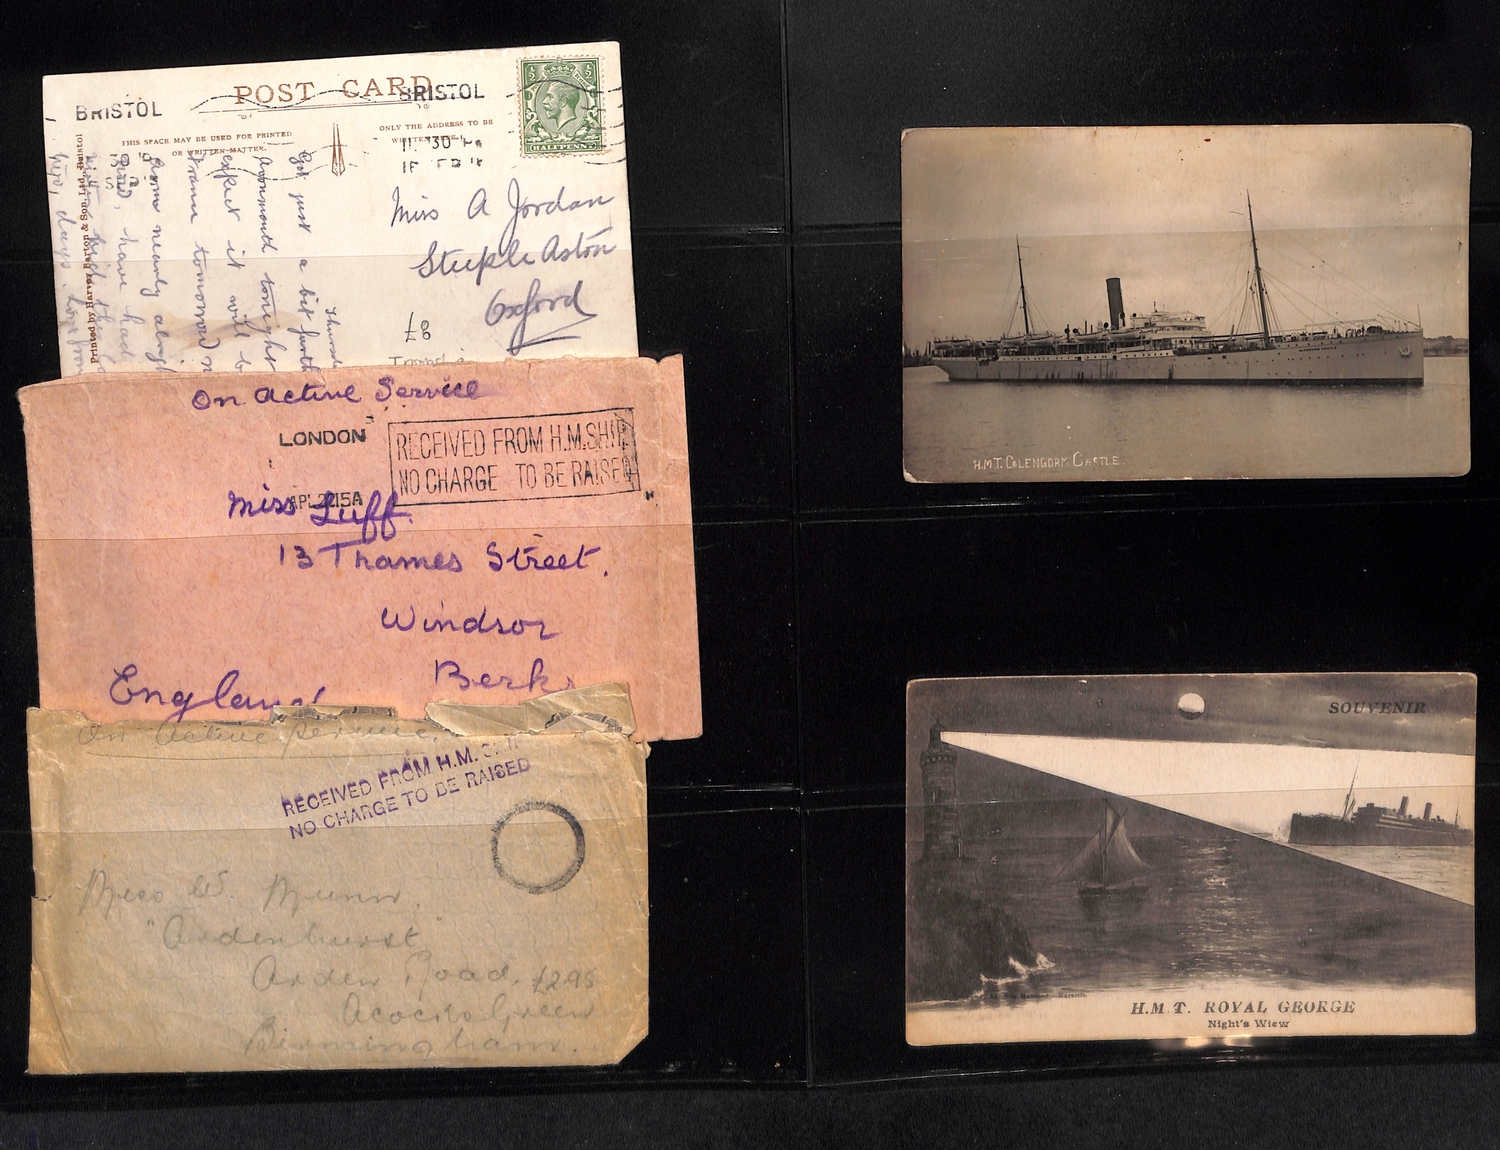 POST CARD
BRISTOL
BRISTOL
THIS SPACE MAY BE USED FOR PRINTED
OR WRITTEN MATTER.
ONLY THE ADDRESS TO BE
11. 30
HALFPENNY
Printed by Harvey Barton & Son, Ltd, Bristol
Got just a bit furth
Avonmouth tonight
expect it will b
tomorrow
nearly
have had
days. love from
Miss A Jordan
Steeple Aston
Oxford
£8
On Active Service
LONDON
RECEIVED FROM H.M. SHIP.
NO CHARGE TO BE RAISED
15A
Miss Luff.
13 Thames Street.
Windsor
Berks
England
On Active Service.
RECEIVED FROM H.M. SHIP
NO CHARGE TO BE RAISED
Miss W. Munn.
"Ardenhurst"
Arden Road.
£2.95
Acocks Green
Birmingham.
H.M.T. GLENGORM CASTLE.
SOUVENIR
H.M.T. ROYAL GEORGE
Night's Wiew